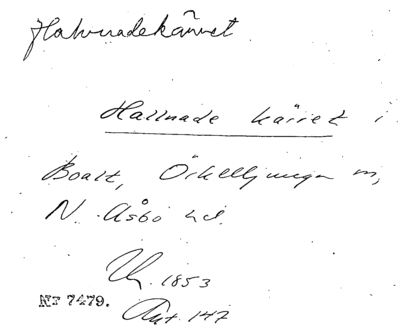 Halvnadekärret
Hallnade kärret i
Boalt, Örkelljunga sn,
N. Åsbo hd.
Uk. 1853
Nr 7479.
Ant. 147